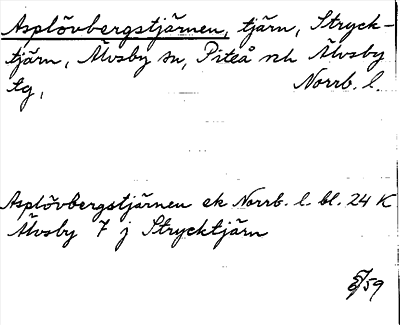 Asplövbergstjärnen, tjärn, Stryck-
tjärn, Älvsby sn, Piteå och Älvsby
tg, Norrb. l.
Asplövbergstjärnen ek Norrb. l. bl. 24 K
Älvsby 7 j Strycktjärn
59